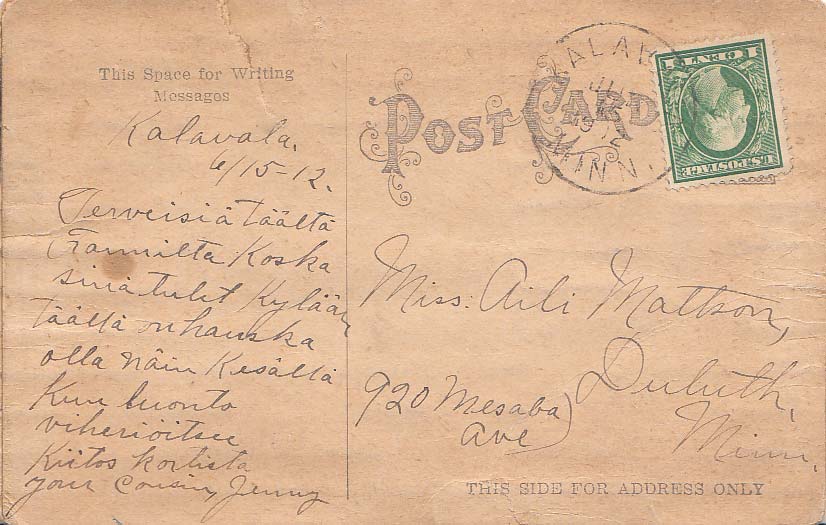 This Space for Writing
Messages
Kalavala.
6/15-12.
Terveisiä täältä
Farmilta Koska
sinä tulet Kylään
täällä on hauska
olla näin Kesällä
Kun luonto
viheriöitsee
Kiitos kortista
your Cousin, Jenny
POST CARD
MINN.
1 CENT 1
U.S. POSTAGE
Miss. Aili Mattson,
Duluth,
Minn.
920 Mesaba
Ave
THIS SIDE FOR ADDRESS ONLY